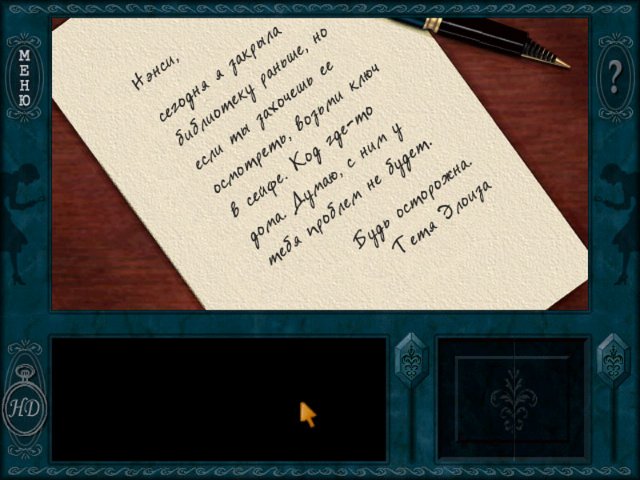 МЕНЮ
?
Нэнси,
сегодня я закрыла
библиотеку раньше, но
если ты захочешь ее
осмотреть, возьми ключ
в сейфе. Код где-то
дома. Думаю, с ним у
тебя проблем не будет.
Будь осторожна.
Тетя Элоиза
НД